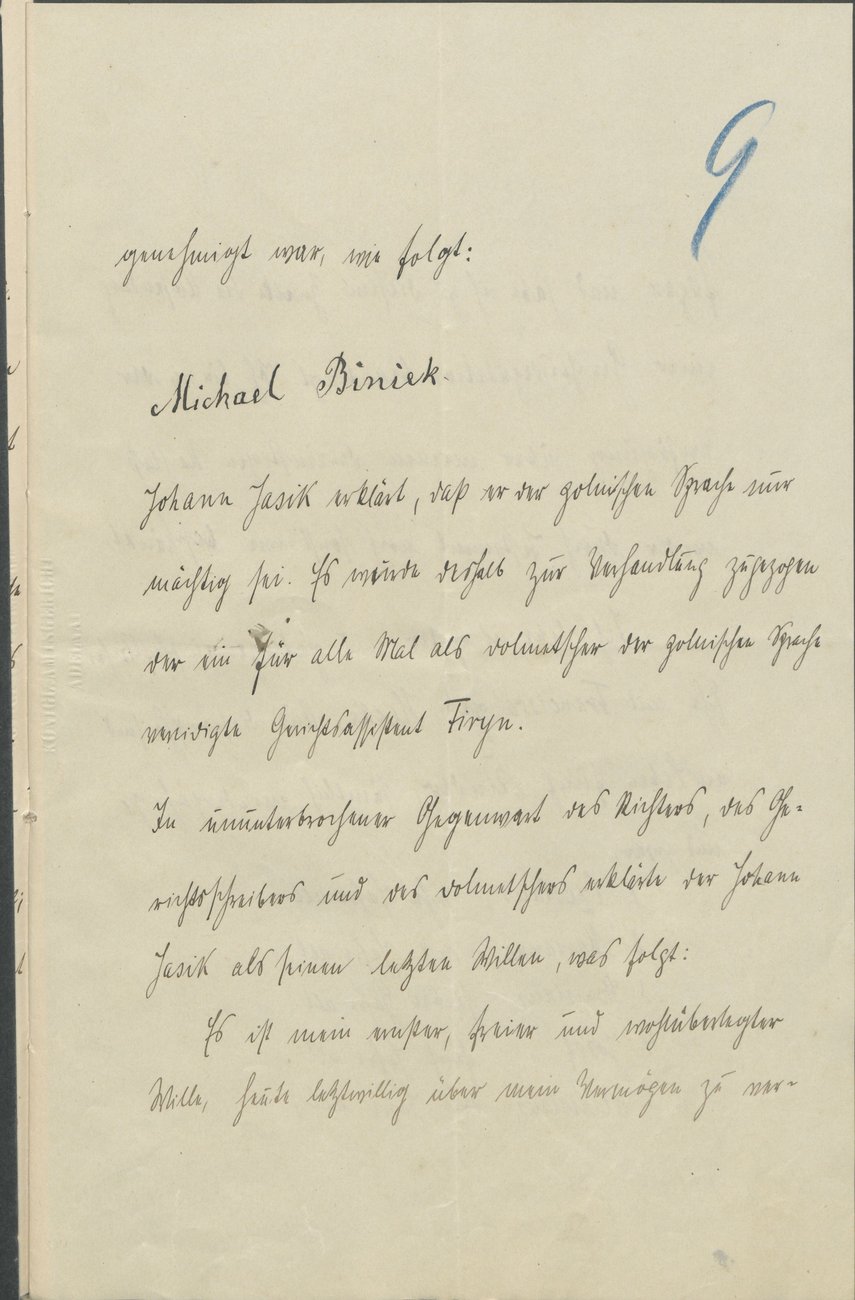 9
genehmigt war, wie folgt:
Michael Biniek.
Johann Jasik erklärt, daß er der polnischen Sprache nur
mächtig sei. Es wurde deshalb zur Verhandlung zugezogen
der ein für alle Mal als Dolmetscher der polnischen Sprache
vereidigte Gerichtsassistent Firyn.
In ununterbrochener Gegenwart des Richters, des Ge-
richtsschreibers und des Dolmetschers erklärte der Johann
Jasik als seinen letzten Willen, was folgt:
Es ist mein ernster, freier und wohlüberlegter
Wille, heute letztwillig über mein Vermögen zu ver-